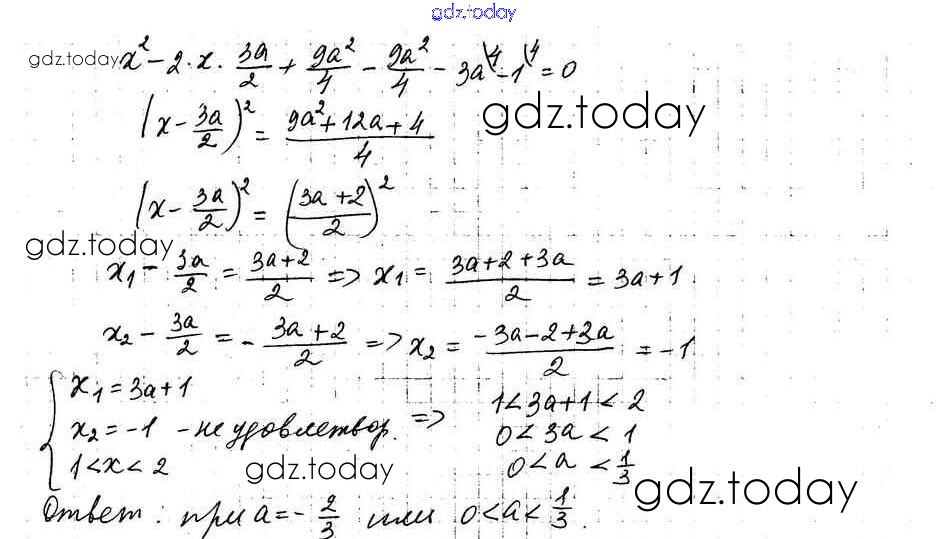 gdz.today
gdz.today x² - 2·x·3a/2 + 9a²/4 - 9a²/4 - 3a\4 - 1\4 = 0
(x - 3a/2)² = (9a² + 12a + 4)/4 gdz.today
(x - 3a/2)² = ((3a + 2)/2)²
gdz.today
x₁ - 3a/2 = (3a+2)/2 => x₁ = (3a+2+3a)/2 = 3a+1
x₂ - 3a/2 = - (3a+2)/2 => x₂ = (-3a-2+3a)/2 = -1
{ x₁ = 3a+1 1<3a+1<2
x₂ = -1 - не удовлетвор. => 0<3a<1
1<x<2 gdz.today 0<a<1/3 gdz.today
Ответ: при a = -2/3 или 0<a<1/3.